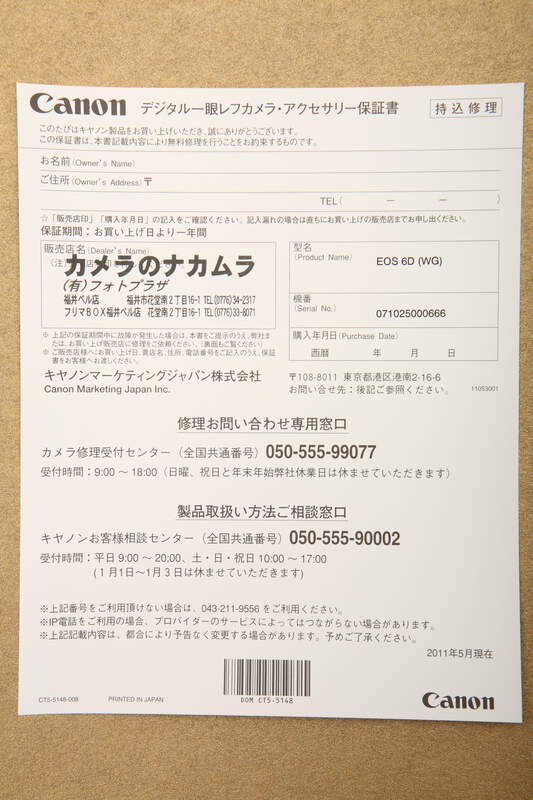 Canon デジタル一眼レフカメラ・アクセサリー保証書 持込修理
このたびはキヤノン製品をお買い上げいただき、誠にありがとうございます。
この保証書は、本書記載内容により無料修理を行うことをお約束するものです。
お名前(Owner's Name)
ご住所(Owner's Address) 〒
TEL( ー ー )
☆「販売店印」「購入年月日」の記入をご確認ください。記入漏れの場合は直ちにお買い上げの販売店までお申し出ください。
保証期間:お買い上げ日より一年間
販売店名(Dealer's Name)
カメラのナカムラ
(有)フォトプラザ
福井ベル店 福井市花堂南2丁目16-1 TEL(0776)34-2317
フリマBOX福井ベル店 花堂南2丁目16-1 TEL(0776)33-8071
型名
(Product Name) EOS 6D (WG)
機番
(Serial No.) 071025000666
購入年月日(Purchase Date)
西暦 年 月 日
※上記の保証期間中に故障が発生した場合は、本書をご提示のうえ、弊社ま
たは、お買い上げ販売店に修理をご依頼ください。(裏面もご覧ください)
※ご販売店様へお買い上げ日、貴店名、住所、電話番号をご記入のうえ、保証
書をお客様へお渡しください。
キヤノンマーケティングジャパン株式会社
Canon Marketing Japan Inc.
〒108-8011 東京都港区港南2-16-6
お問い合せ先:後記ご参照ください。 110S3001
修理お問い合わせ専用窓口
カメラ修理受付センター(全国共通番号) 050-555-99077
受付時間:9:00 ~ 18:00(日曜、祝日と年末年始弊社休業日は休ませていただきます)
製品取扱い方法ご相談窓口
キヤノンお客様相談センター(全国共通番号) 050-555-90002
受付時間:平日 9:00 ~ 20:00、土・日・祝日 10:00 ~ 17:00
(1月1日~1月3日は休ませていただきます)
※上記番号をご利用頂けない場合は、043-211-9556 をご利用ください。
※IP電話をご利用の場合、プロバイダーのサービスによってはつながらない場合があります。
※上記記載内容は、都合により予告なく変更する場合があります。予めご了承ください。
2011年5月現在
CT5-5148-008 PRINTED IN JAPAN
DOM CT5-5148
Canon